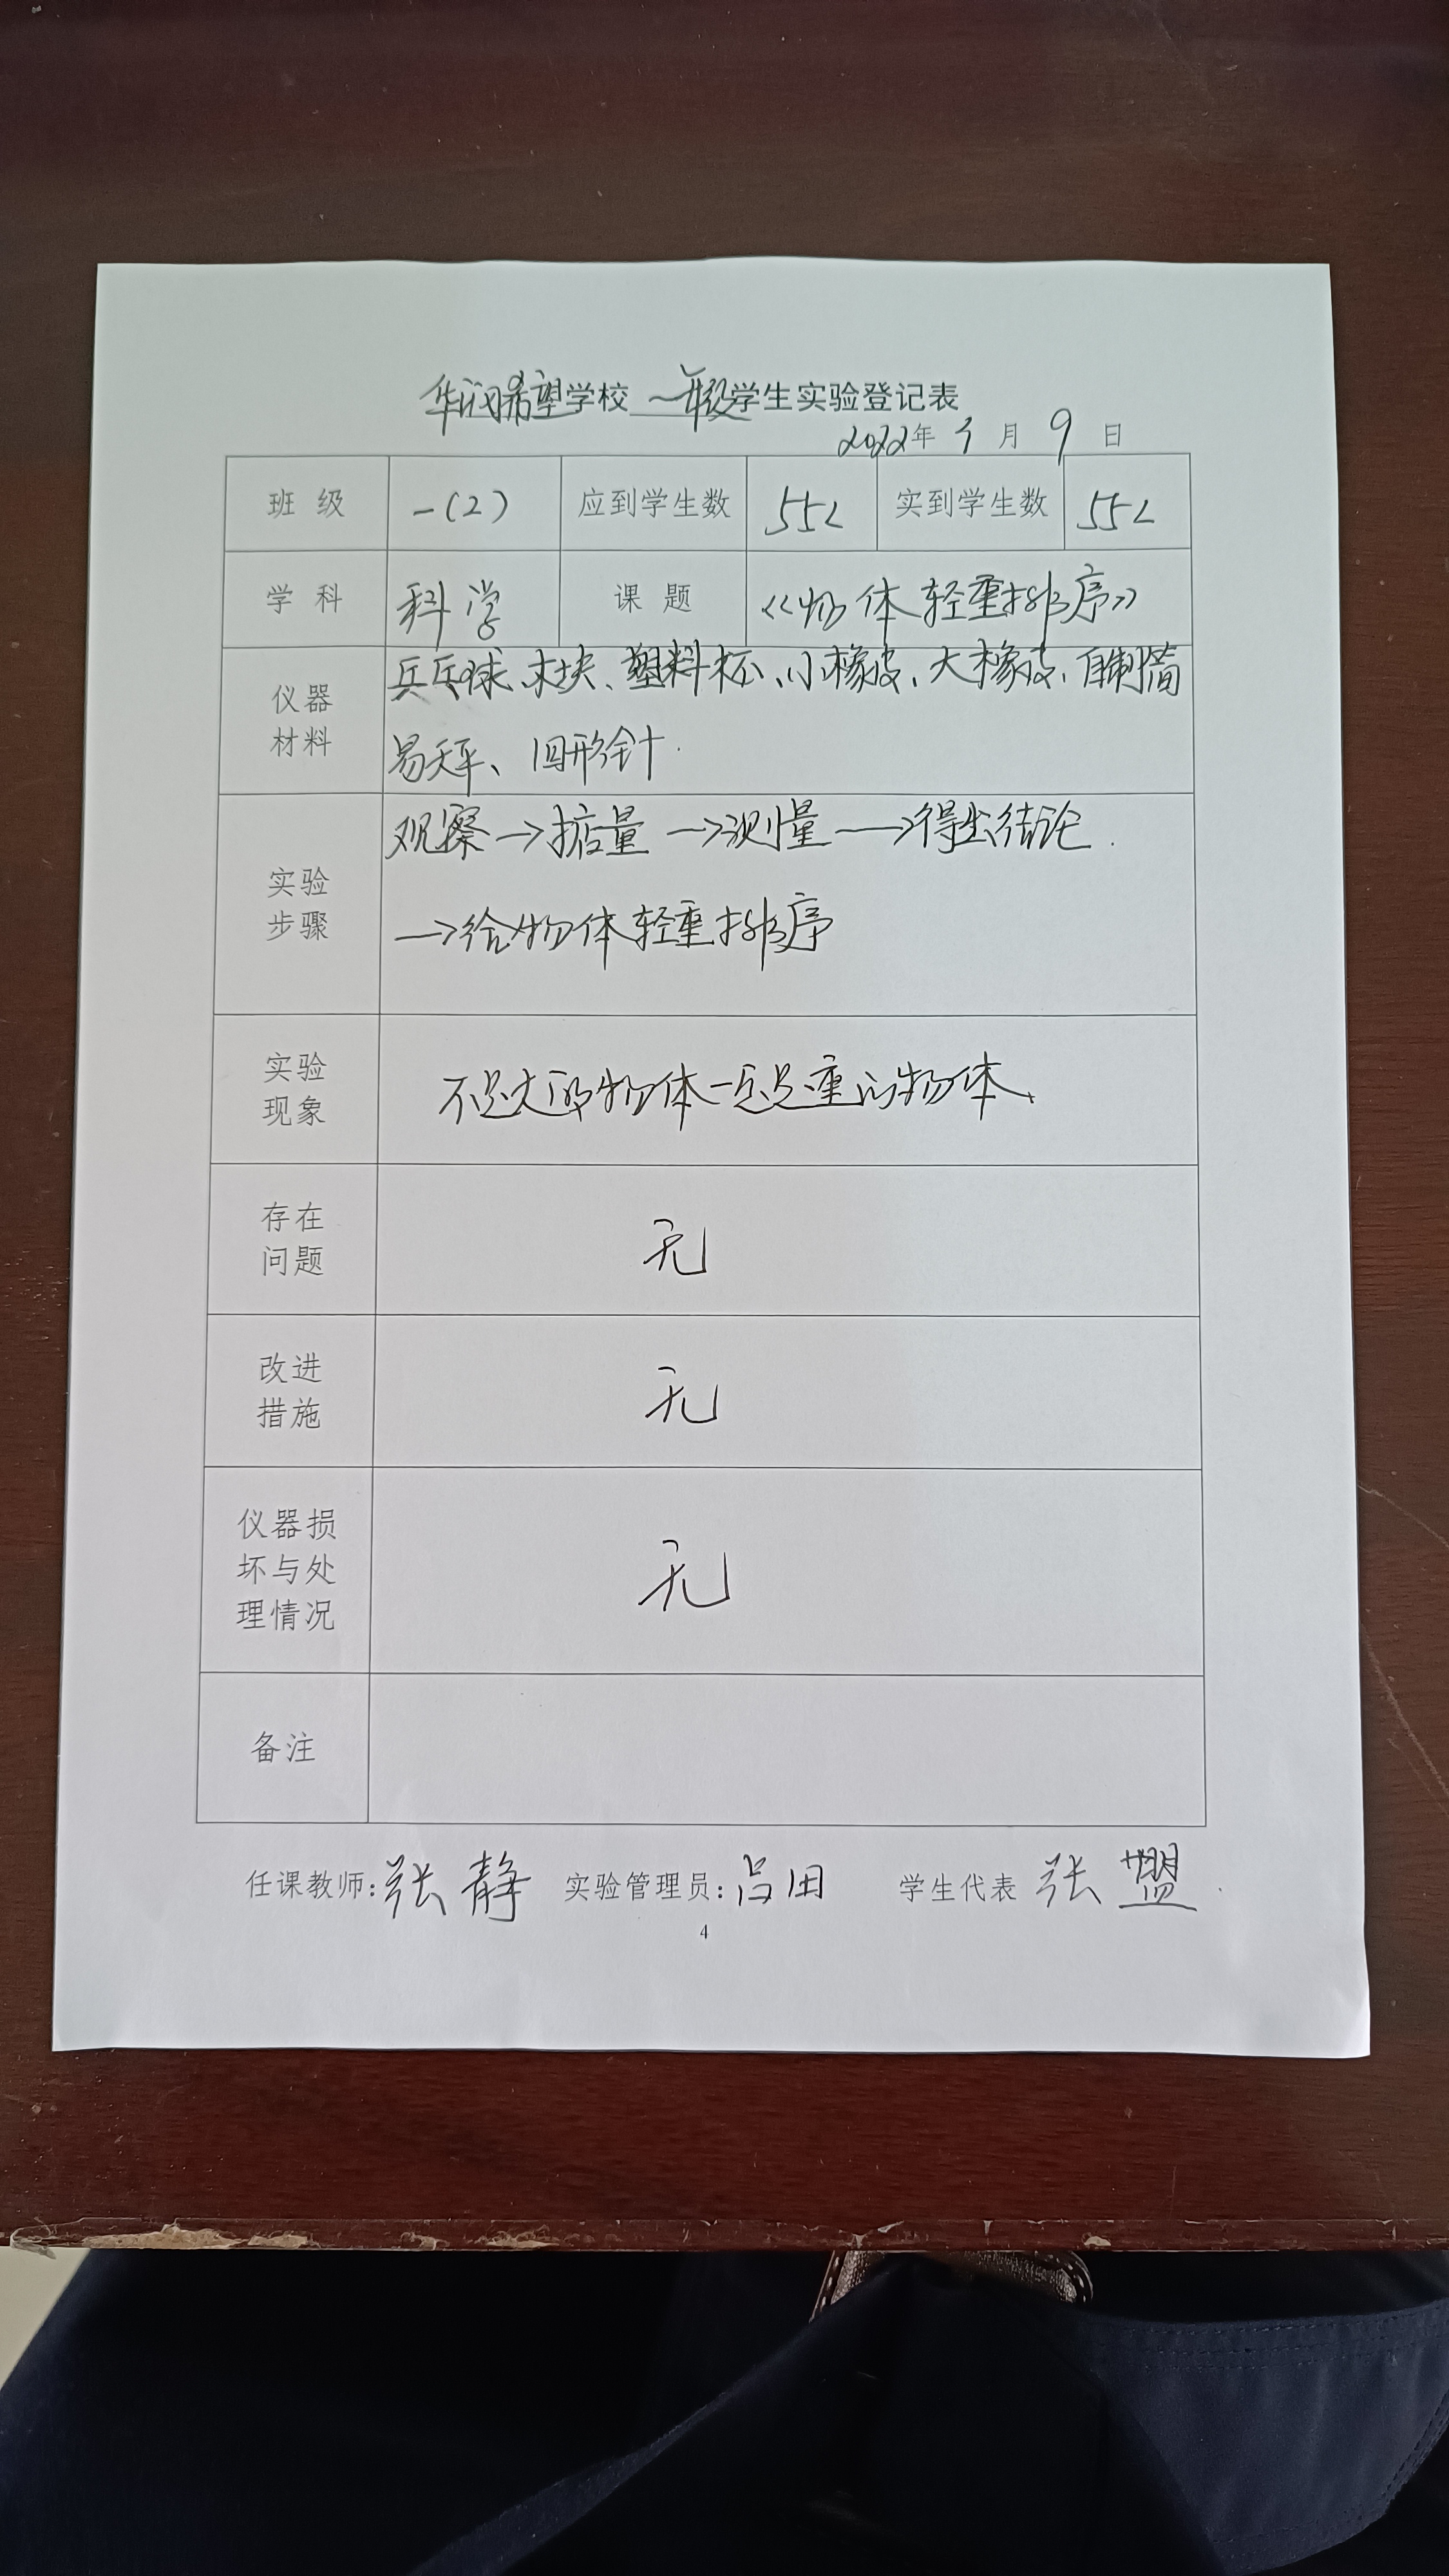 华润希望学校 一年级学生实验登记表
2022年 3 月 9 日
班 级 一(2) 应到学生数 55人 实到学生数 55人
学 科 科学 课 题 《物体轻重排序》
仪器
材料
乒乓球、木块、塑料杯、小橡皮、大橡皮、自制简
易天平、回形针.
实验
步骤
观察→掂量→测量→得出结论.
→给物体轻重排序
实验
现象
不是大的物体一定是重的物体、
存在
问题
无
改进
措施
无
仪器损
坏与处
理情况
无
备注
任课教师:张静 实验管理员:吕田 学生代表 张盟
4